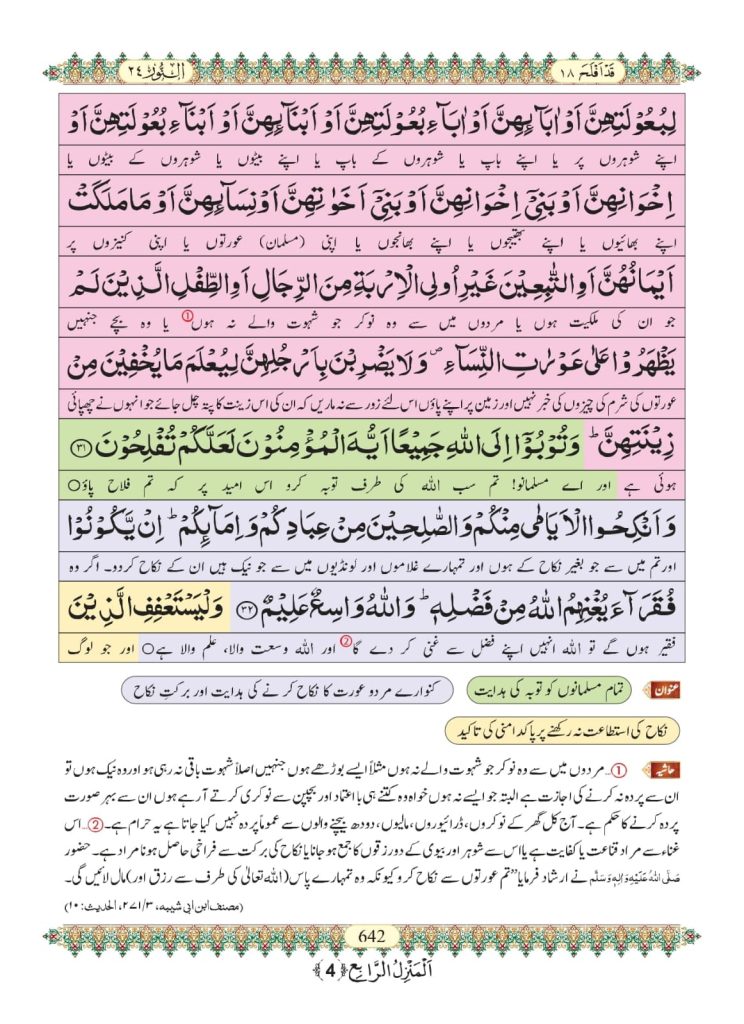 قَدْ اَفْلَحَ ١٨
اَلنُّوْر ٢٤
لِبُعُوْلَتِهِنَّ اَوْ اٰبَآىِٕهِنَّ اَوْ اٰبَآءِ بُعُوْلَتِهِنَّ اَوْ اَبْنَآىِٕهِنَّ اَوْ اَبْنَآءِ بُعُوْلَتِهِنَّ اَوْ
اپنے شوہروں پر یا اپنے باپ یا شوہروں کے باپ یا اپنے بیٹوں یا شوہروں کے بیٹوں یا
اِخْوَانِهِنَّ اَوْ بَنِیْۤ اِخْوَانِهِنَّ اَوْ بَنِیْۤ اَخَوٰتِهِنَّ اَوْ نِسَآىِٕهِنَّ اَوْ مَا مَلَكَتْ
اپنے بھائیوں یا اپنے بھتیجوں یا اپنے بھانجوں یا اپنی (مسلمان) عورتوں یا اپنی کنیزوں پر
اَیْمَانُهُنَّ اَوِ التّٰبِعِیْنَ غَیْرِ اُولِی الْاِرْبَةِ مِنَ الرِّجَالِ اَوِ الطِّفْلِ الَّذِیْنَ لَمْ
جو ان کی ملکیت ہوں یا مردوں میں سے وہ نوکر جو شہوت والے نہ ہوں① یا وہ بچے جنہیں
یَظْهَرُوْا عَلٰى عَوْرٰتِ النِّسَآءِ ۪ وَ لَا یَضْرِبْنَ بِاَرْجُلِهِنَّ لِیُعْلَمَ مَا یُخْفِیْنَ مِنْ
عورتوں کی شرم کی چیزوں کی خبر نہیں اور زمین پر اپنے پاؤں اس لئے زور سے نہ ماریں کہ ان کی اس زینت کا پتہ چل جائے جو انہوں نے چھپائی
زِیْنَتِهِنَّ ؕ وَ تُوْبُوْۤا اِلَى اللّٰهِ جَمِیْعًا اَیُّهَ الْمُؤْمِنُوْنَ لَعَلَّكُمْ تُفْلِحُوْنَ ﴿۳۱﴾
ہوئی ہے اور اے مسلمانو! تم سب اللہ کی طرف توبہ کرو اس امید پر کہ تم فلاح پاؤ○
وَ اَنْكِحُوا الْاَیَامٰى مِنْكُمْ وَ الصّٰلِحِیْنَ مِنْ عِبَادِكُمْ وَ اِمَآىِٕكُمْ ؕ اِنْ یَّكُوْنُوْا
اور تم میں سے جو بغیر نکاح کے ہوں اور تمہارے غلاموں اور لونڈیوں میں سے جو نیک ہیں ان کے نکاح کردو۔ اگر وہ
فُقَرَآءَ یُغْنِهِمُ اللّٰهُ مِنْ فَضْلِهٖ ؕ وَ اللّٰهُ وَاسِعٌ عَلِیْمٌ ﴿۳۲﴾ وَ لْیَسْتَعْفِفِ الَّذِیْنَ
فقیر ہوں گے تو اللہ انہیں اپنے فضل سے غنی کر دے گا② اور اللہ وسعت والا، علم والا ہے○ اور جو لوگ
عنوان تمام مسلمانوں کو توبہ کی ہدایت کنوارے مرد و عورت کا نکاح کرنے کی ہدایت اور برکتِ نکاح
نکاح کی استطاعت نہ رکھنے پر پاکدامنی کی تاکید
حاشیہ ①… مردوں میں سے وہ نوکر جو شہوت والے نہ ہوں مثلاً ایسے بوڑھے ہوں جنہیں اصلاً شہوت باقی نہ رہی ہو اور وہ نیک ہوں تو
ان سے پردہ نہ کرنے کی اجازت ہے البتہ جو ایسے نہ ہوں خواہ وہ کتنے ہی بااعتماد اور بچپن سے نوکری کرتے آرہے ہوں ان سے بہر صورت
پردہ کرنے کا حکم ہے۔ آج کل گھر کے نوکروں، ڈرائیوروں، مالیوں، دودھ بیچنے والوں سے عموماً پردہ نہیں کیا جاتا ہے یہ حرام ہے۔ ②… اس
غناء سے مراد قناعت یا کفایت ہے یا اس سے شوہر اور بیوی کے دو رزقوں کا جمع ہو جانا یا نکاح کی برکت سے فراخی حاصل ہونا مراد ہے۔ حضور
صَلَّی اللہُ عَلَیْہِ وَاٰلِہٖ وَسَلَّم نے ارشاد فرمایا ”تم عورتوں سے نکاح کرو کیونکہ وہ تمہارے پاس (اللہ تعالیٰ کی طرف سے رزق اور) مال لائیں گی۔
(مصنف ابن ابی شیبہ، ٣/ ٢٧١، الحدیث: ١٠)
642
اَلْمَنْزِلُ الرَّابِع ﴿4﴾